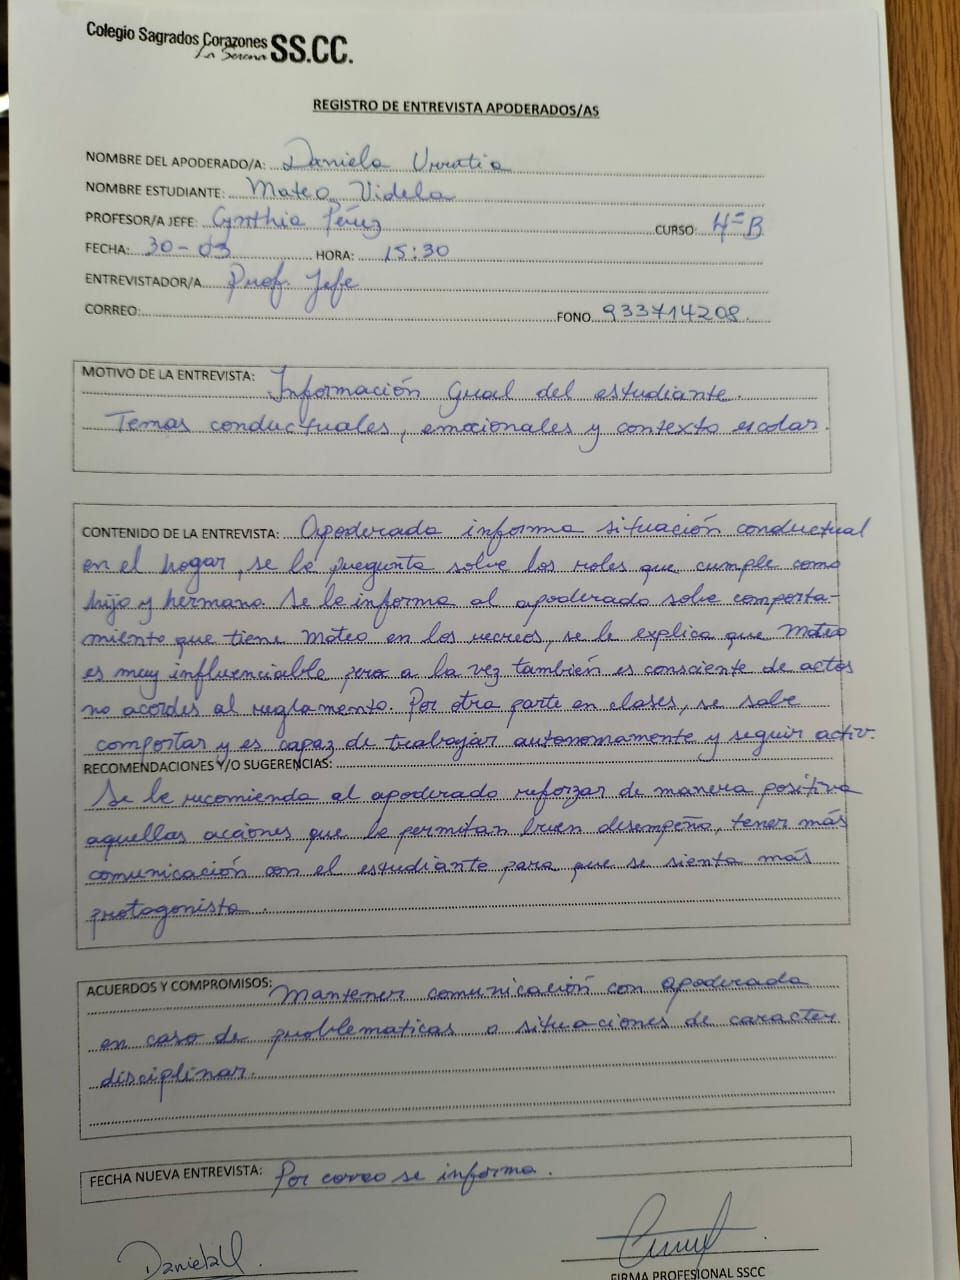 Colegio Sagrados Corazones SS.CC.
La Serena
REGISTRO DE ENTREVISTA APODERADOS/AS
NOMBRE DEL APODERADO/A: Daniela Urrutia
NOMBRE ESTUDIANTE: Mateo Videla
PROFESOR/A JEFE: Cynthia Pérez CURSO: 4°B
FECHA: 30-03 HORA: 15:30
ENTREVISTADOR/A Prof. Jefe
CORREO: FONO 933714208
MOTIVO DE LA ENTREVISTA: Información Gral del estudiante.
Temas conductuales, emocionales y contexto escolar.
CONTENIDO DE LA ENTREVISTA: Apoderada informa situación conductual
en el hogar, se le pregunta sobre los roles que cumple como
hijo y hermano. Se le informa al apoderado sobre comporta-
miento que tiene Mateo en los recreos, se le explica que Mateo
es muy influenciable pero a la vez también es consciente de actos
no acordes al reglamento. Por otra parte en clases, se sabe
comportar y es capaz de trabajar autonomamente y seguir activ.
RECOMENDACIONES Y/O SUGERENCIAS:
Se le recomienda al apoderado reforzar de manera positiva
aquellas acciones que le permitan buen desempeño, tener más
comunicación con el estudiante para que se sienta más
protagonista.
ACUERDOS Y COMPROMISOS: Mantener comunicación con apoderada
en caso de problematicas o situaciones de caracter
disciplinar.
FECHA NUEVA ENTREVISTA: Por correo se informa.
Daniela U.
FIRMA PROFESIONAL SSCC